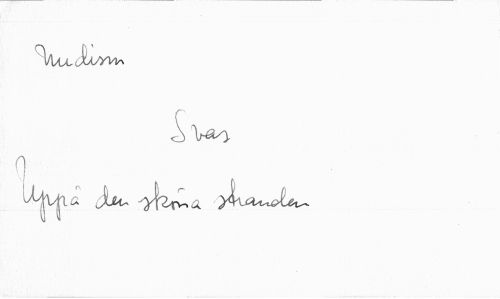 Nudism
Svar
Uppå den sköna stranden